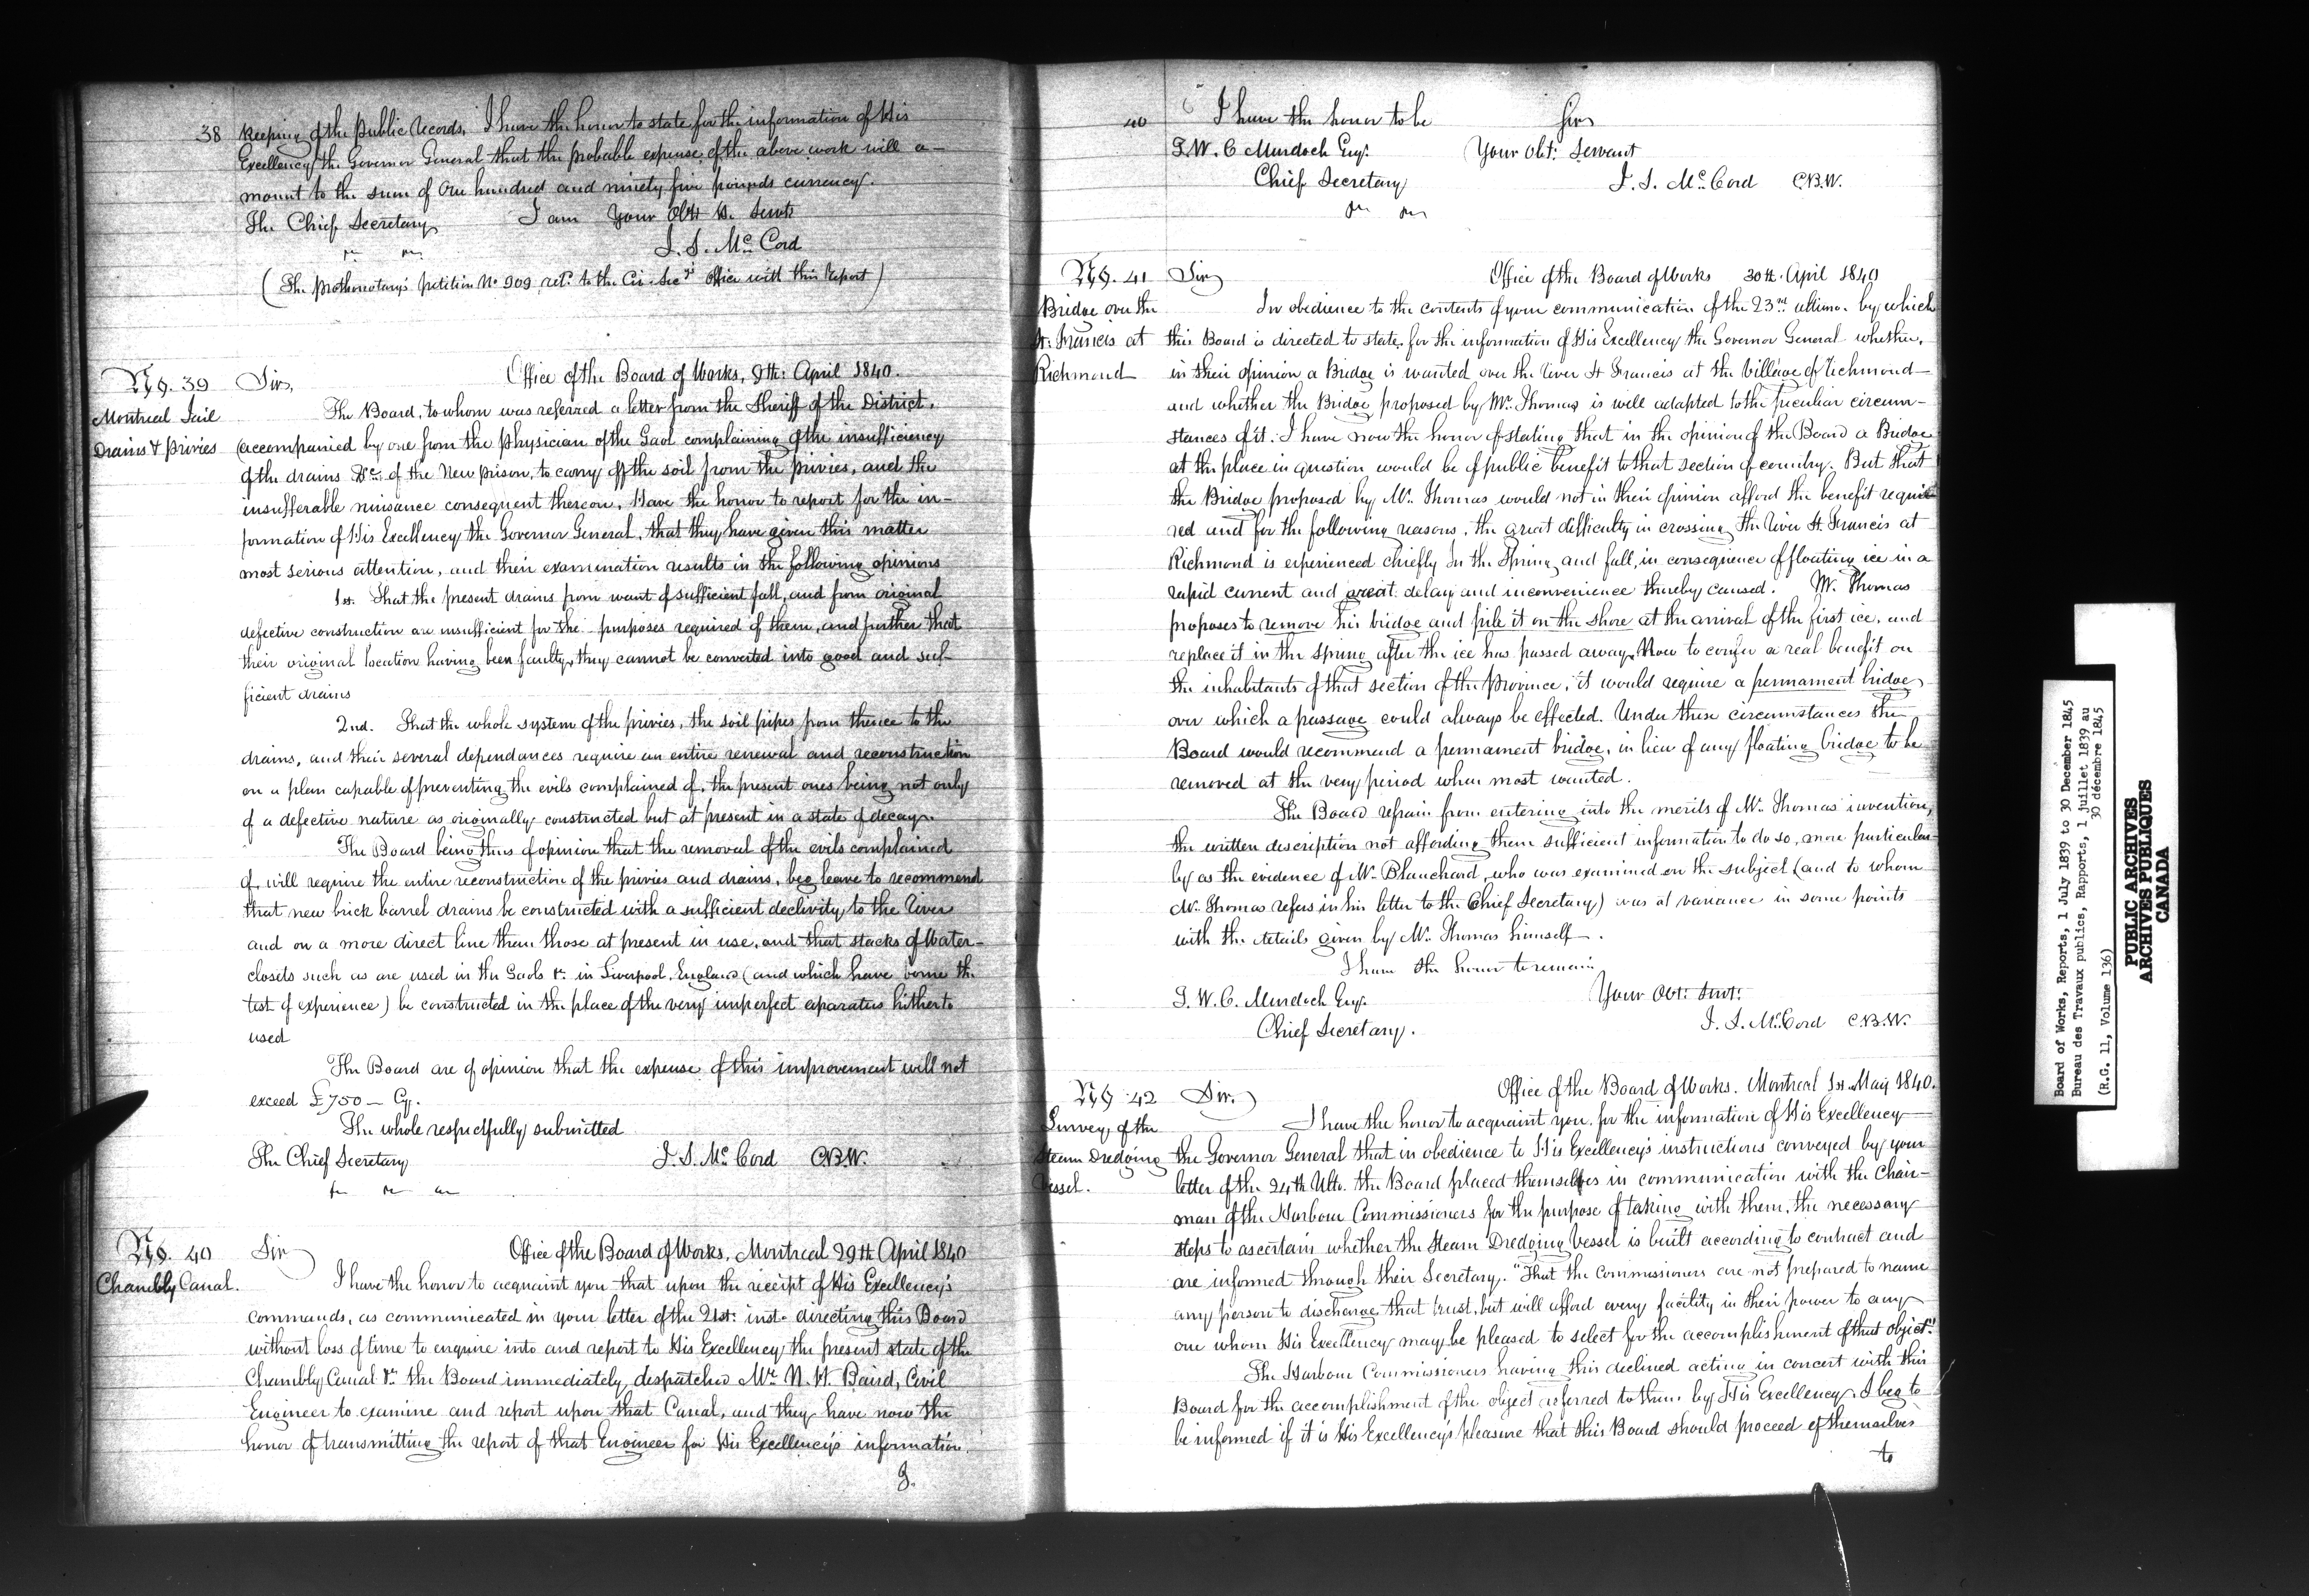 38 Keeping of the Public Records, I have the honor to state for the information of His
Excellency the Governor General that the probable expense of the above work will a-
mount to the sum of One hundred and ninety five pounds currency.
The Chief Secretary I am Your Obt H. Servt
J. S. McCord
(The prothonotary's petition No 909 retd. to the Civ. Secy's Office with this Report)
No. 39 Sir, Office of the Board of Works, 9th: April 1840.
Montreal Jail The Board, to whom was referred a letter from the Sheriff of the District,
Drains & Privies accompanied by one from the Physician of the Gaol complaining of the insufficiency
of the drains &c. of the New prison, to carry off the soil from the privies, and the
insufferable nuisance consequent thereon, Have the honor to report for the in-
formation of His Excellency the Governor General, that they have given this matter
most serious attention, and their examination results in the following opinions
1st. That the present drains from want of sufficient fall, and from original
defective construction are insufficient for the purposes required of them, and further that
their original location having been faulty, they cannot be converted into good and suf-
ficient drains
2nd. That the whole system of the privies, the soil pipes from thence to the
drains, and their several dependances require an entire renewal and reconstruction
on a plan capable of preventing the evils complained of, the present ones being not only
of a defective nature as originally constructed but at present in a state of decay.
The Board being thus of opinion that the removal of the evils complained
of, will require the entire reconstruction of the privies and drains, beg leave to recommend
that new brick barrel drains be constructed with a sufficient declivity to the River
and on a more direct line than those at present in use, and that stacks of Water-
closets such as are used in the Gaols &c. in Liverpool, England (and which have borne the
test of experience) be constructed in the place of the very imperfect aparatus hitherto
used
The Board are of opinion that the expense of this improvement will not
exceed £750 — Cy.
The whole respectfully submitted
The Chief Secretary J. S. McCord C.B.W.
No. 40 Sir Office of the Board of Works, Montreal 29th April 1840
Chambly Canal. I have the honor to acquaint you that upon the receipt of His Excellency's
commands, as communicated in your letter of the 21st: inst. directing this Board
without loss of time to enquire into and report to His Excellency the present state of the
Chambly Canal &c. the Board immediately despatched Mr. N. H. Baird, Civil
Engineer to examine and report upon that Canal, and they have now the
honor of transmitting the report of that Engineer for His Excellency's information.
I.
40 I have the honor to be Sir
T. W. C Murdoch Esqr. Your Obt: Servant
Chief Secretary J. S. McCord C.B.W.
No. 41 Sir Office of the Board of Works 30th. April 1840
Bridge over the In obedience to the contents of your communication of the 23rd ultimo. by which
St: Francis at this Board is directed to state, for the information of His Excellency the Governor General whether,
Richmond in their opinion a Bridge is wanted over the River St Francis at the Village of Richmond
and whether the Bridge proposed by Mr. Thomas is well adapted to the peculiar circum-
stances of it. I have now the honor of stating that in the opinion of the Board a Bridge
at the place in question would be of public benefit to that section of country. But that
the Bridge proposed by Mr. Thomas would not in their opinion afford the benefit requi-
red and for the following reasons, the great difficulty in crossing the River St. Francis at
Richmond is experienced chiefly in the Spring and fall, in consequence of floating ice in a
rapid current and great delay and inconvenience thereby caused. Mr. Thomas
proposes to remove his bridge and pile it on the shore at the arrival of the first ice, and
replace it in the spring after the ice has passed away. Now to confer a real benefit on
the inhabitants of that section of the Province, it would require a permament bridge,
over which a passage could always be effected. Under these circumstances the
Board would recommend a permament bridge, in lieu of any floating bridge to be
removed at the very period when most wanted.
The Board refrain from entering into the merits of Mr. Thomas' invention,
the written description not affording them sufficient information to do so, more particular-
ly as the evidence of Mr. Blanchard, who was examined on the subject (and to whom
Mr. Thomas refers in his letter to the Chief Secretary) was at variance in some points
with the details given by Mr. Thomas himself.
I have the honor to remain
T. W. C. Murdoch Esqr. Your Obt: Servt:
Chief Secretary. J. S. McCord C.B.W.
No. 42 Sir. Office of the Board of Works. Montreal 1st. May 1840.
Survey of the I have the honor to acquaint you, for the information of His Excellency
Steam Dredging the Governor General that in obedience to His Excellency's instructions conveyed by your
Vessel. letter of the 24th Ulto. the Board placed themselves in communication with the Chair-
man of the Harbour Commissioners for the purpose of taking with them, the necessary
steps to ascertain whether the Steam Dredging Vessel is built according to contract and
are informed through their Secretary. "That the Commissioners are not prepared to name
any person to discharge that trust, but will afford every facility in their power to any
one whom His Excellency may be pleased to select for the accomplishment of that object."
The Harbour Commissioners having this declined acting in concert with this
Board for the accomplishment of the object referred to them by His Excellency. I beg to
be informed if it is His Excellency's pleasure that this Board should proceed of themselves
to
Board of Works, Reports, 1 July 1839 to 30 December 1845
Bureau des Travaux publics, Rapports, 1 juillet 1839 au
30 décembre 1845
(R.G. 11, Volume 136)
PUBLIC ARCHIVES
ARCHIVES PUBLIQUES
CANADA